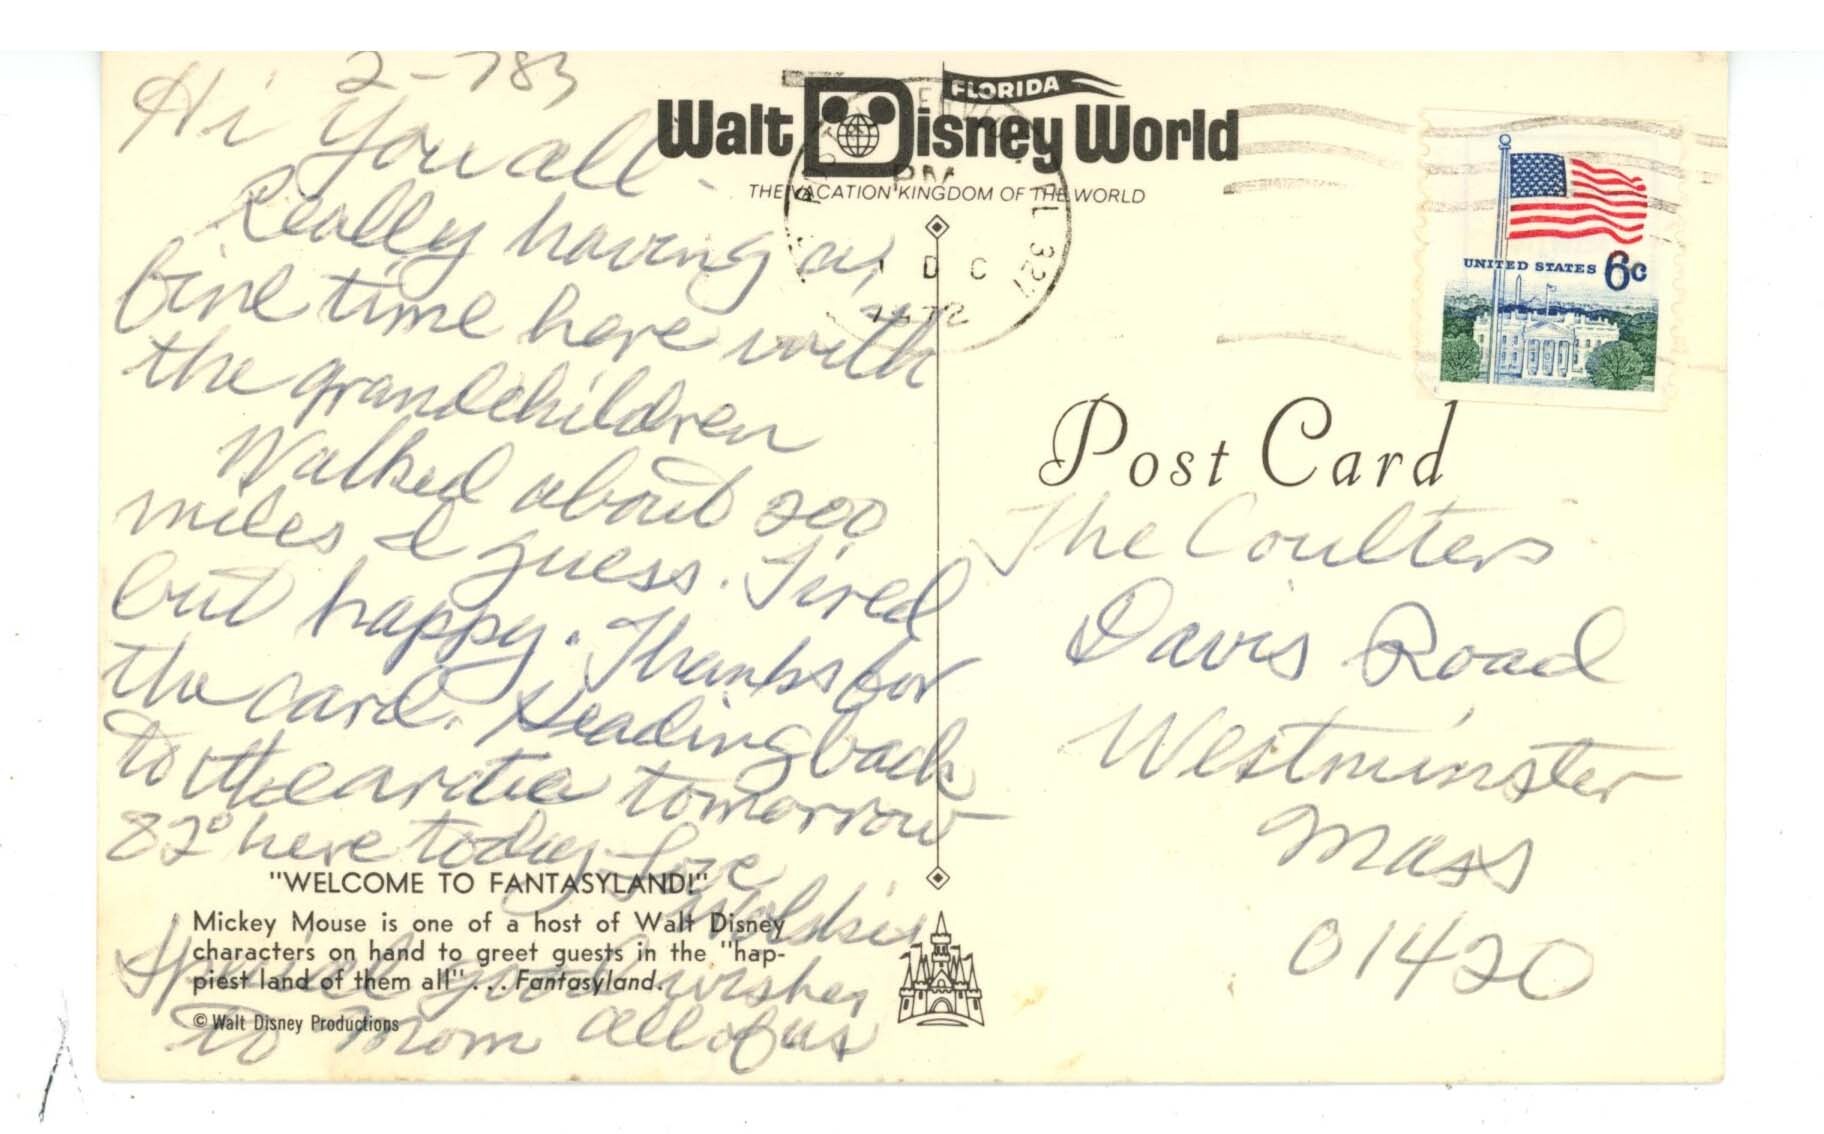 2-783
Hi You all -
Really having a
fine time here with
the grandchildren
Walked about 200
miles I guess. Tired
but happy. Thanks for
the card. Heading back
to the arctic tomorrow
82° here today Love
Special good wishes
To Mom all of us
FLORIDA
Walt Disney World
THE VACATION KINGDOM OF THE WORLD
PM
1972
"WELCOME TO FANTASYLAND!"
Mickey Mouse is one of a host of Walt Disney
characters on hand to greet guests in the "hap-
piest land of them all" . . . Fantasyland.
© Walt Disney Productions
UNITED STATES 6c
Post Card
The Coulters
Davis Road
Westminster
Mass
01420